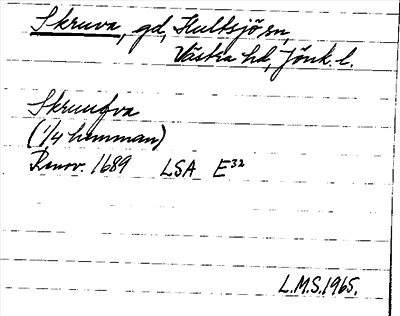 Skruva, gd, Hultsjö sn,
Västra hd, Jönk. l.
Skruufva
(1/4 hemman)
Renov. 1689 LSA E32
L.M.S. 1965.